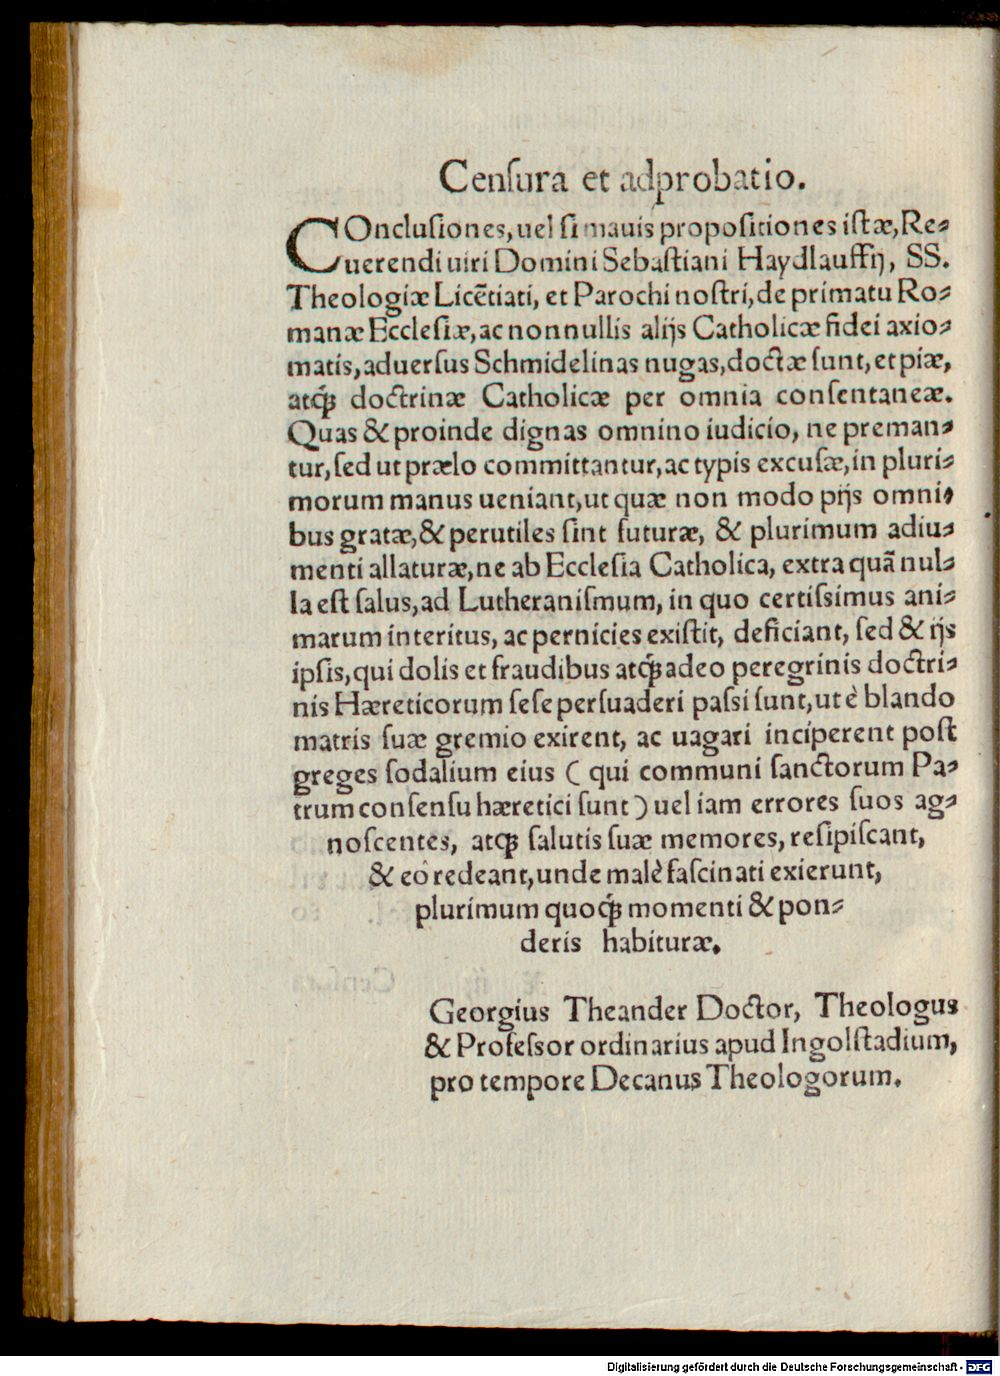 Cenſura et adprobatio.
COncluſiones, uel ſi mauis propoſitiones iſtæ, Re⸗
uerendi uiri Domini Sebaſtiani Haydlauffij, SS.
Theologiæ Licẽtiati, et Parochi noſtri, de primatu Ro⸗
manæ Eccleſiæ, ac nonnullis alijs Catholicæ fidei axio⸗
matis, aduerſus Schmidelinas nugas, doctæ ſunt, et piæ,
atq́ꝫ doctrinæ Catholicæ per omnia conſentaneæ.
Quas & proinde dignas omnino iudicio, ne preman⸗
tur, ſed ut prælo committantur, ac typis excuſæ, in pluri⸗
morum manus ueniant, ut quæ non modo pijs omni⸗
bus gratæ, & perutiles ſint futuræ, & plurimum adiu⸗
menti allaturæ, ne ab Eccleſia Catholica, extra quã nul⸗
la eſt ſalus, ad Lutheraniſmum, in quo certiſsimus ani⸗
marum interitus, ac pernicies exiſtit, deficiant, ſed & ijs
ipſis, qui dolis et fraudibus atq́ꝫ adeo peregrinis doctri⸗
nis Hæreticorum ſeſe perſuaderi paſsi ſunt, ut è blando
matris ſuæ gremio exirent, ac uagari inciperent poſt
greges ſodalium eius ( qui communi ſanctorum Pa⸗
trum conſenſu hæretici ſunt ) uel iam errores ſuos ag⸗
noſcentes, atq́ꝫ ſalutis ſuæ memores, reſipiſcant,
& eò redeant, unde malè faſcinati exierunt,
plurimum quoq́ꝫ momenti & pon⸗
deris habituræ.
Georgius Theander Doctor, Theologus
& Profeſsor ordinarius apud Ingolſtadium,
pro tempore Decanus Theologorum.
Digitalisierung gefördert durch die Deutsche Forschungsgemeinschaft - DFG